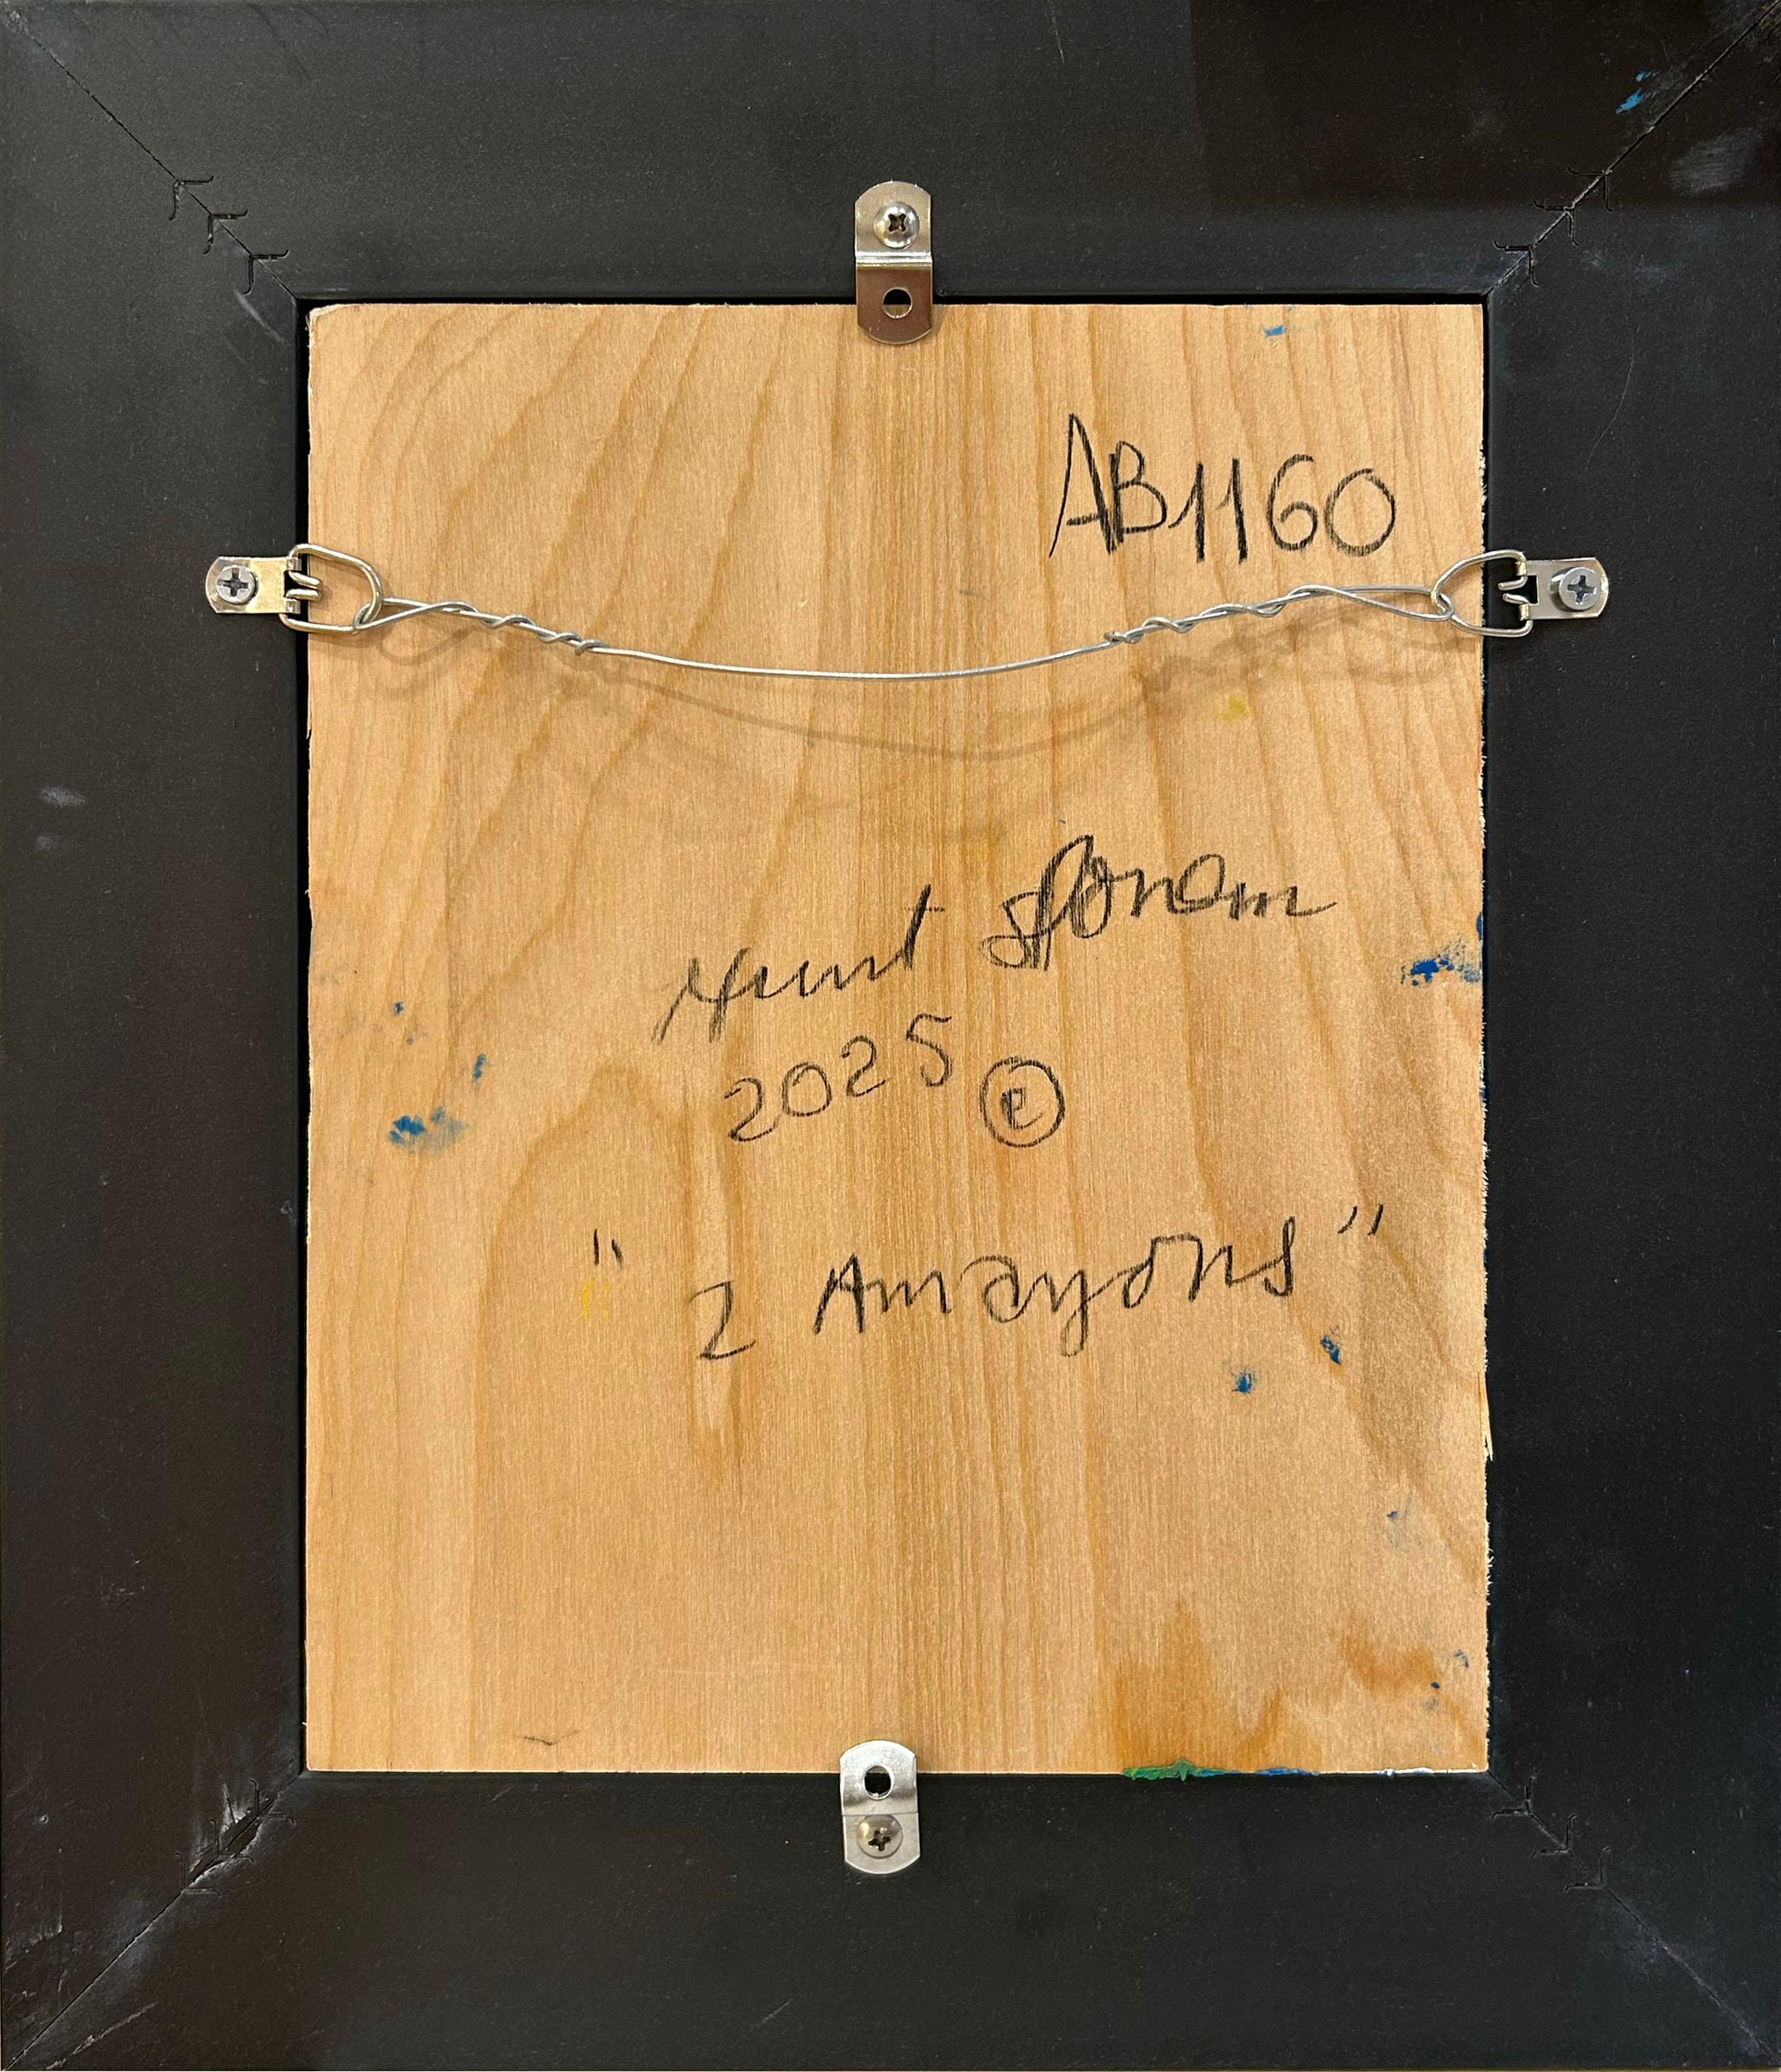 AB1160
Hunt Slonem
2025 ©
" 2 Amazons "